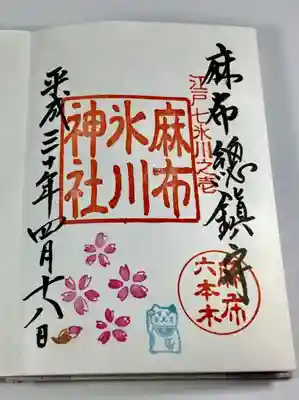 麻布總鎮守
江戸七氷川之壱
麻布
氷川
神社
麻布
六本木
平成三十年四月十八日